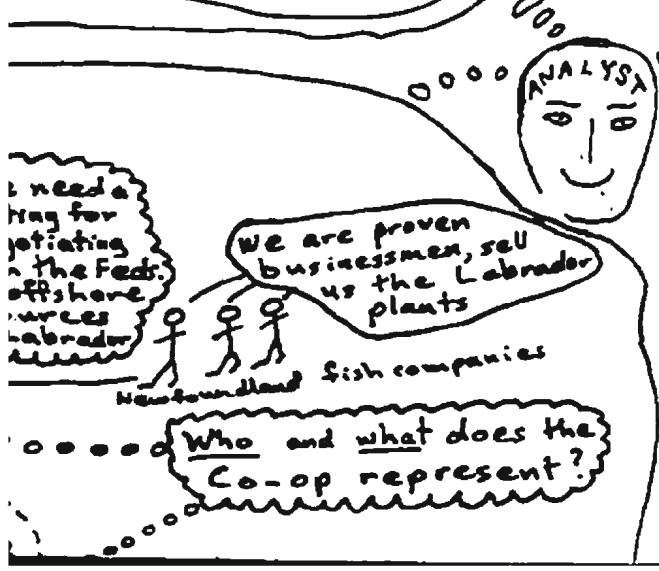 ANALYST
need a
for
the Feds.
offshore
Labrador
We are proven
businessmen, sell
us the Labrador
plants
Newfoundland fish companies
Who and what does the
Co-op represent?